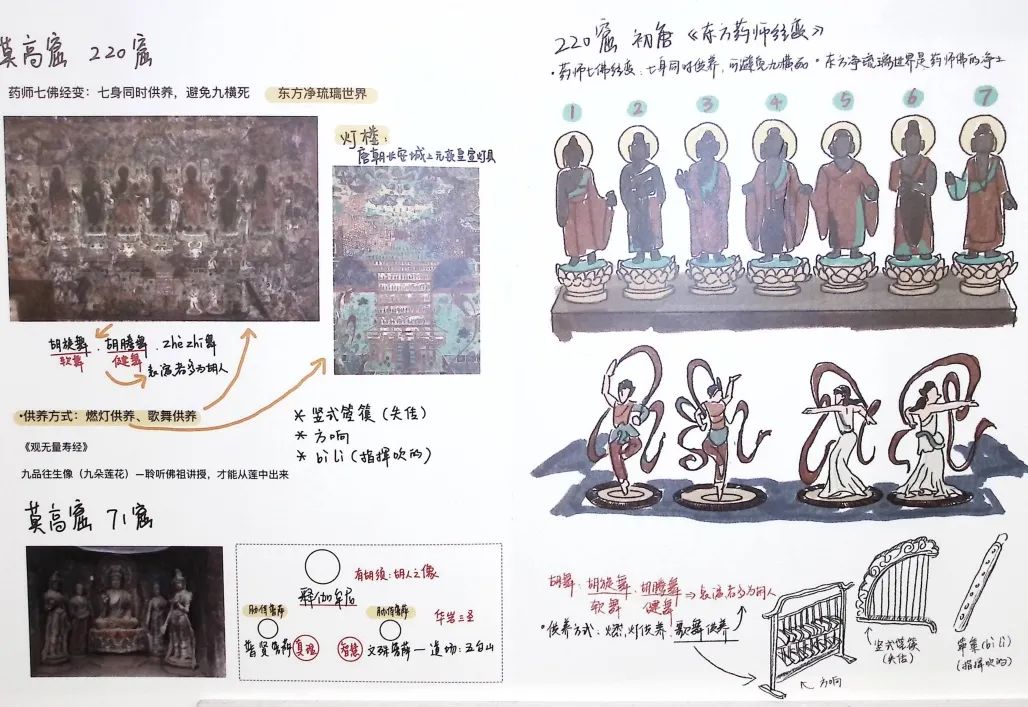 莫高窟 220窟
药师七佛经变：七身同时供养，避免九横死
东方净琉璃世界
灯楼：
唐朝长安城上元夜皇宫灯具
胡旋舞、胡腾舞、zhè zhī舞
软舞 健舞
表演者多为胡人
·供养方式：燃灯供养、歌舞供养
* 竖式箜篌（失传）
* 方响
* bì lì（指挥吹的）
《观无量寿经》
九品往生像（九朵莲花）—聆听佛祖讲授，才能从莲中出来
莫高窟 71窟
释伽牟尼
有胡须：胡人之像
胁侍菩萨
胁侍菩萨
华岩三圣
普贤菩萨 真理
智慧 文殊菩萨—道场：五台山
220窟 初唐《东方药师经变》
·药师七佛经变：七身同时供养，可避免九横死 ·东方净琉璃世界是药师佛的净土
1 2 3 4 5 6 7
胡舞：胡旋舞、胡腾舞 ⇒ 表演者多为胡人
软舞 健舞
·供养方式：燃灯供养、歌舞供养
方响
竖式箜篌
（失传）
筚篥（bì lì）
（指挥吹的）